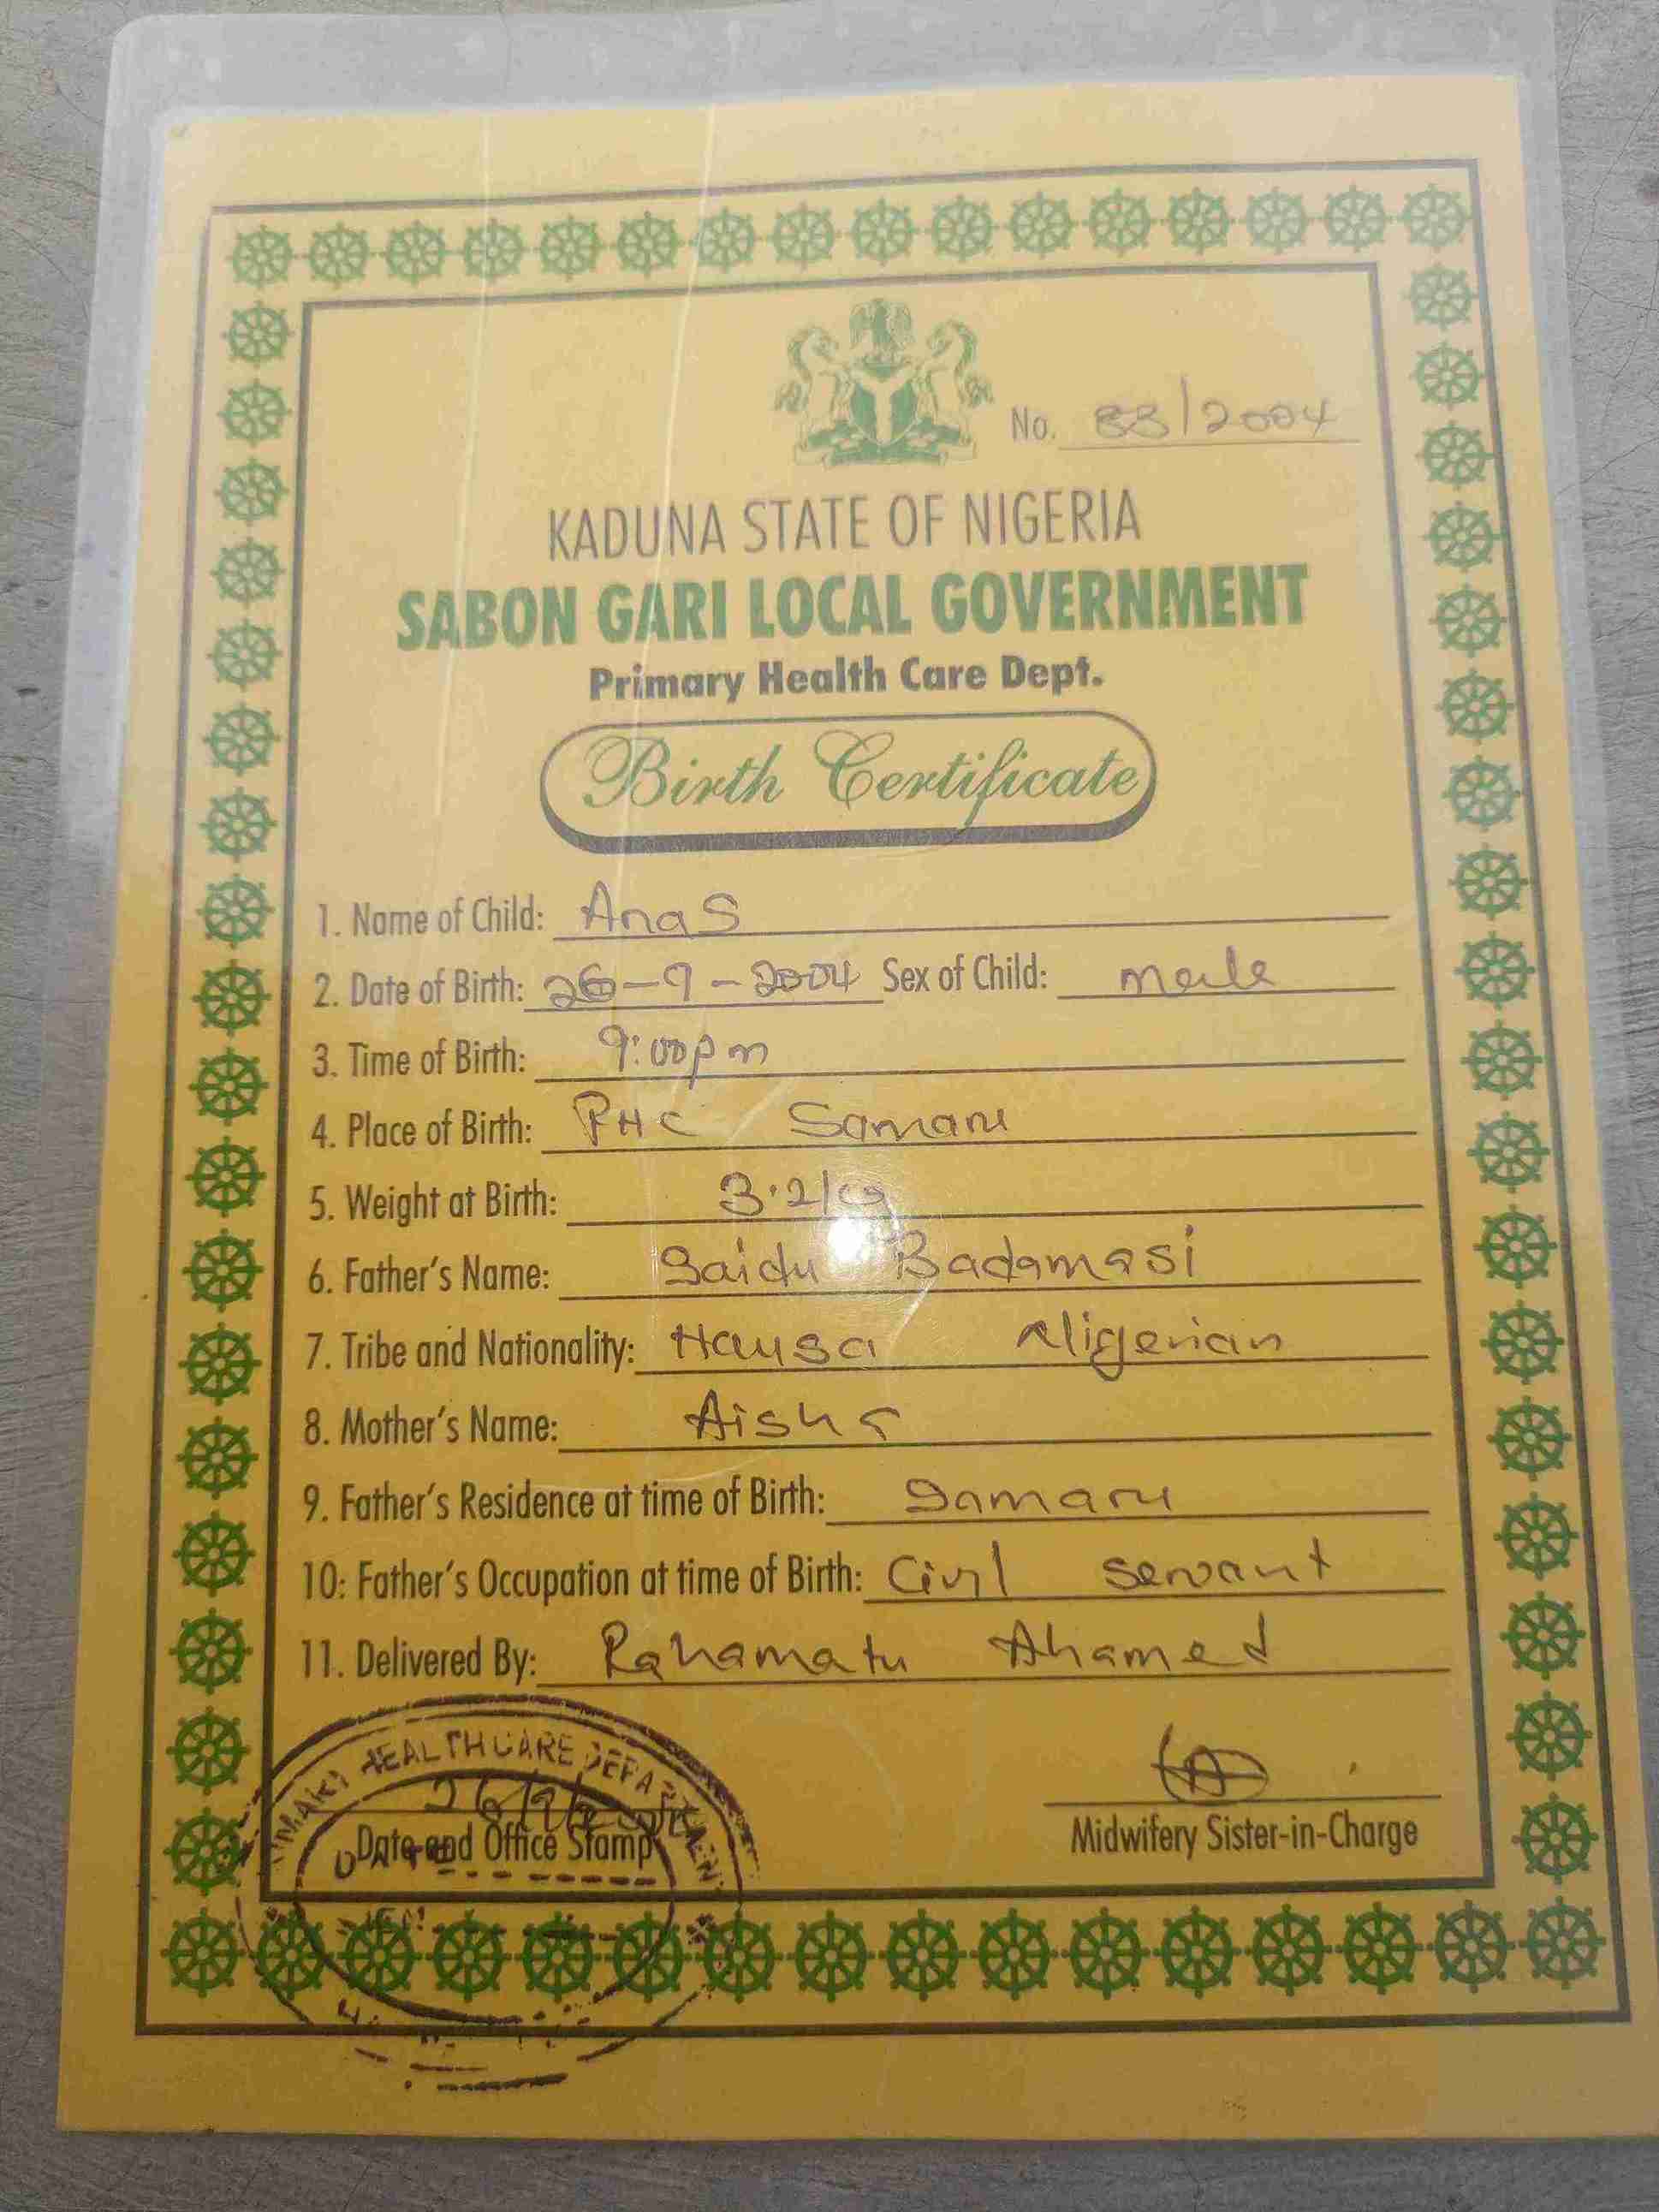 No. 88/2004
KADUNA STATE OF NIGERIA
SABON GARI LOCAL GOVERNMENT
Primary Health Care Dept.
Birth Certificate
1. Name of Child: Anas
2. Date of Birth: 26-9-2004 Sex of Child: Male
3. Time of Birth: 9:00pm
4. Place of Birth: PHC Samaru
5. Weight at Birth: 3.2
6. Father's Name: Saidu Badamasi
7. Tribe and Nationality: Hausa Nigerian
8. Mother's Name: Aisha
9. Father's Residence at time of Birth: Samaru
10: Father's Occupation at time of Birth: Civil Servant
11. Delivered By: Rahamatu Ahamed
HEALTH CARE DEPARTMEN
Date and Office Stamp
Midwifery Sister-in-Charge